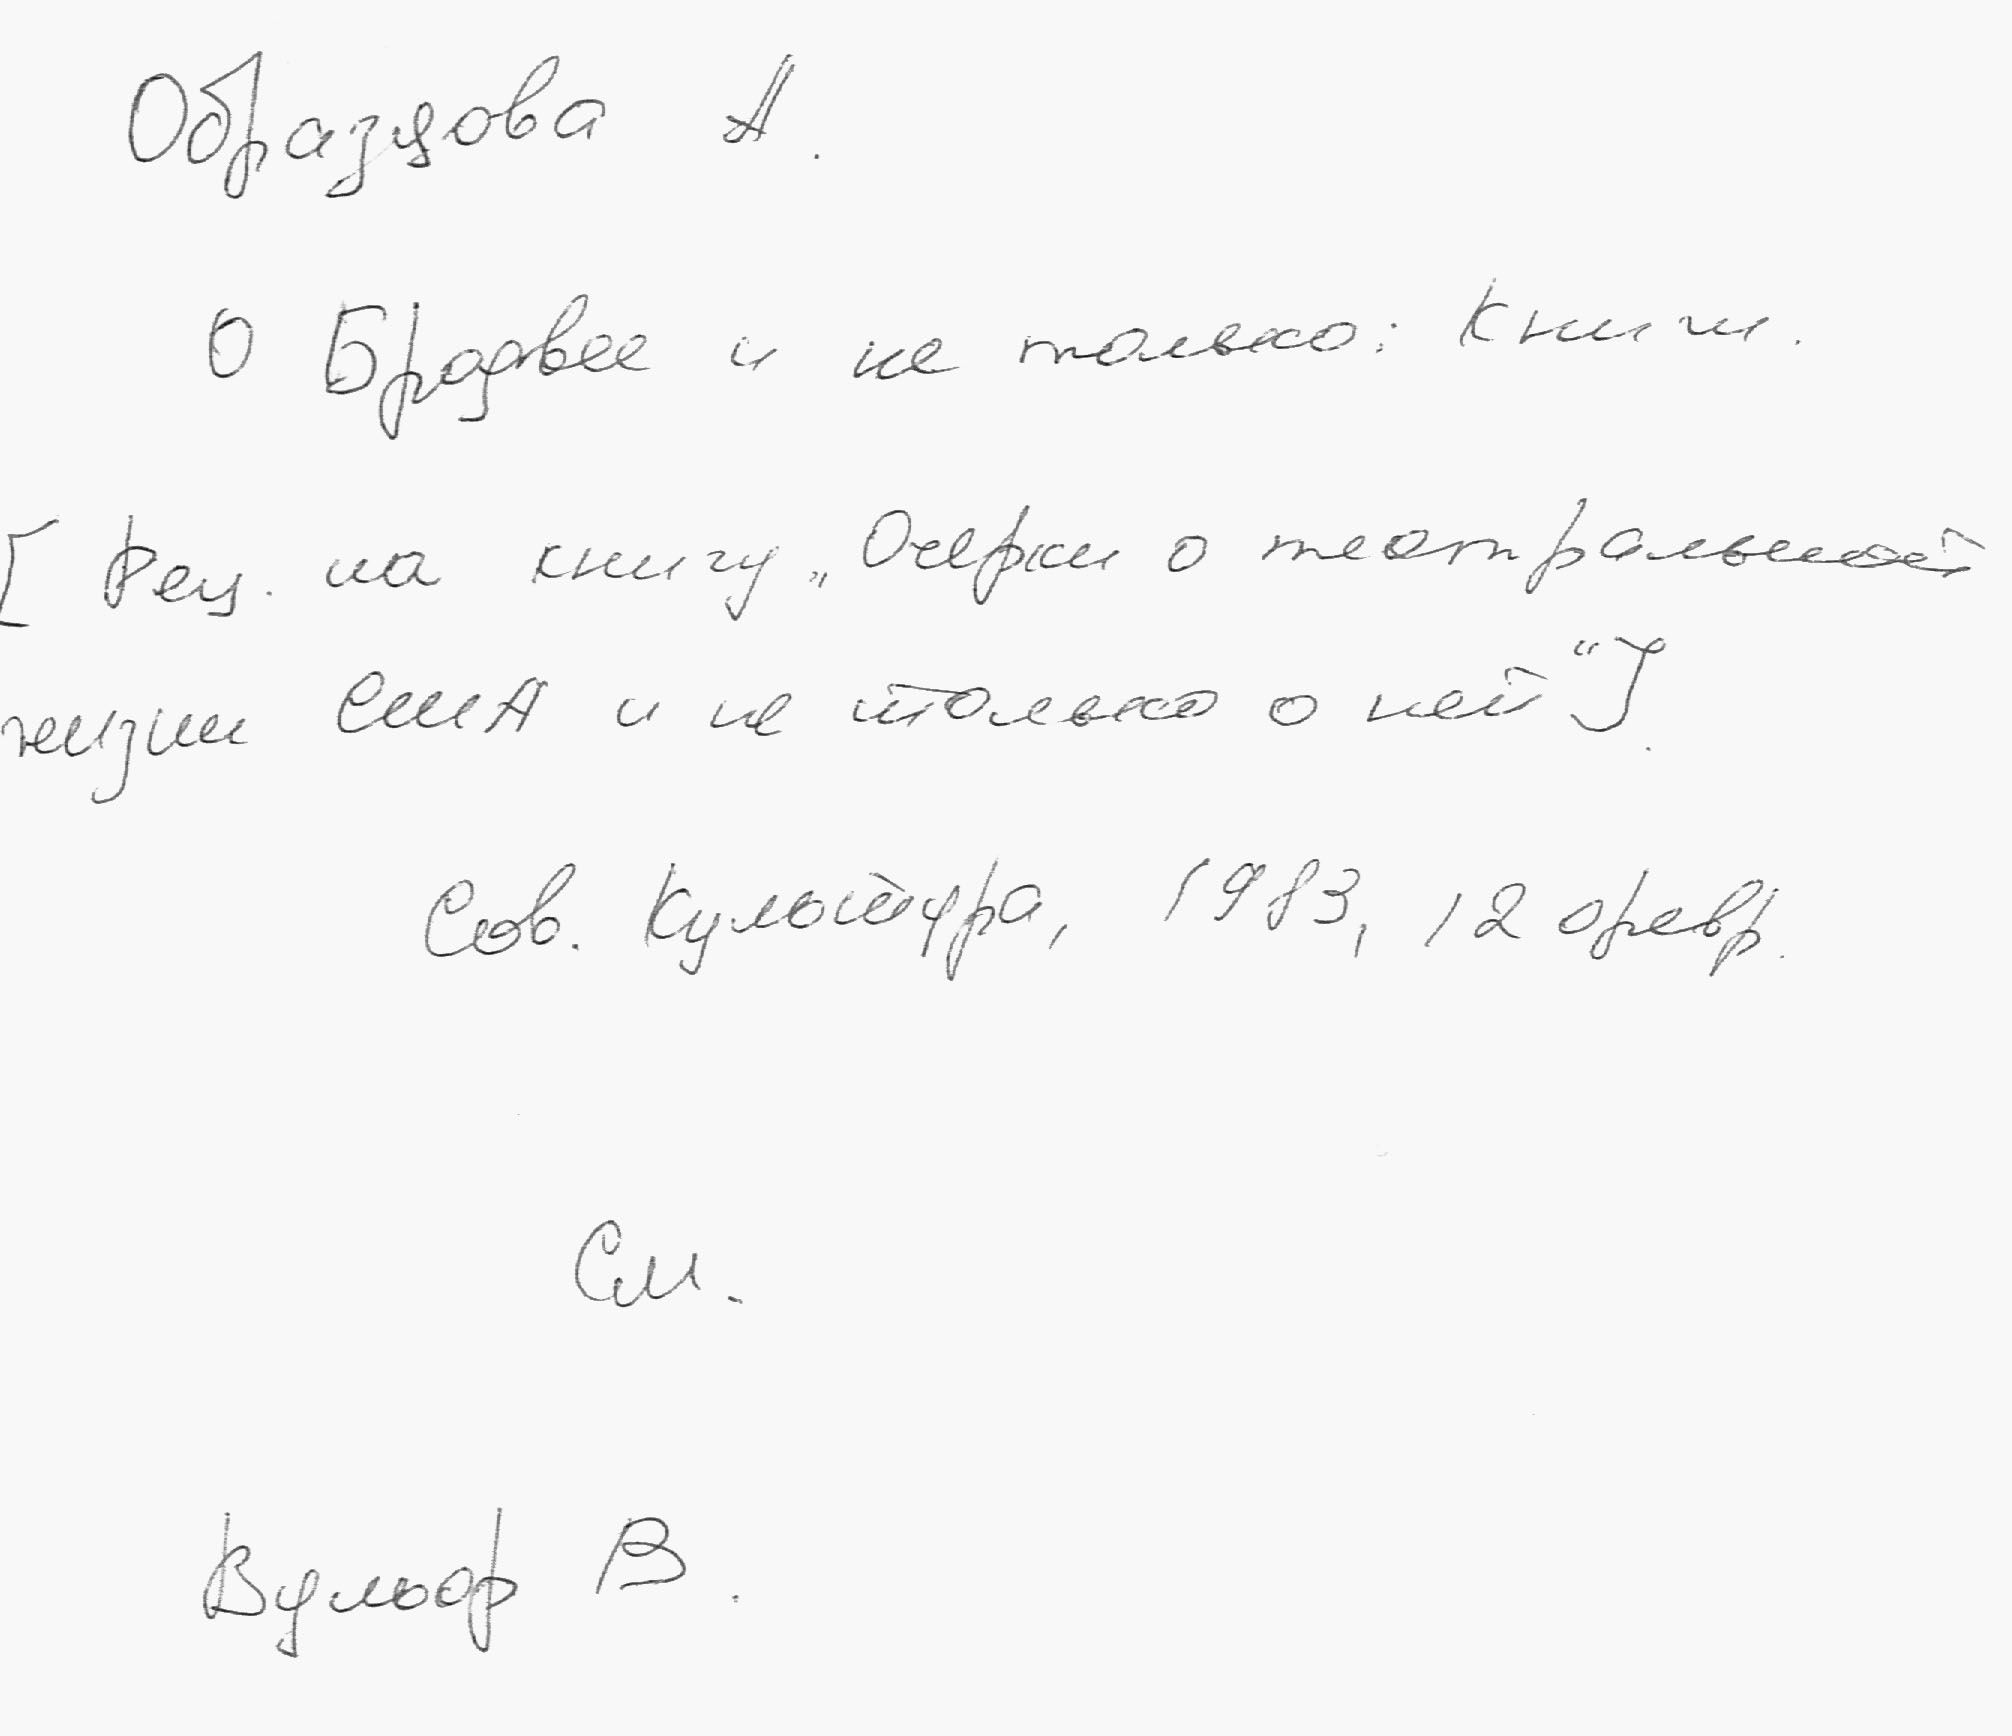 Образцова А.
О Бродвее и не только: Книги.
[Рец. на книгу „Очерки о театральной
жизни США и не только о ней“].
Сов. Культура, 1983, 12 февр.
См.
Вульф В.